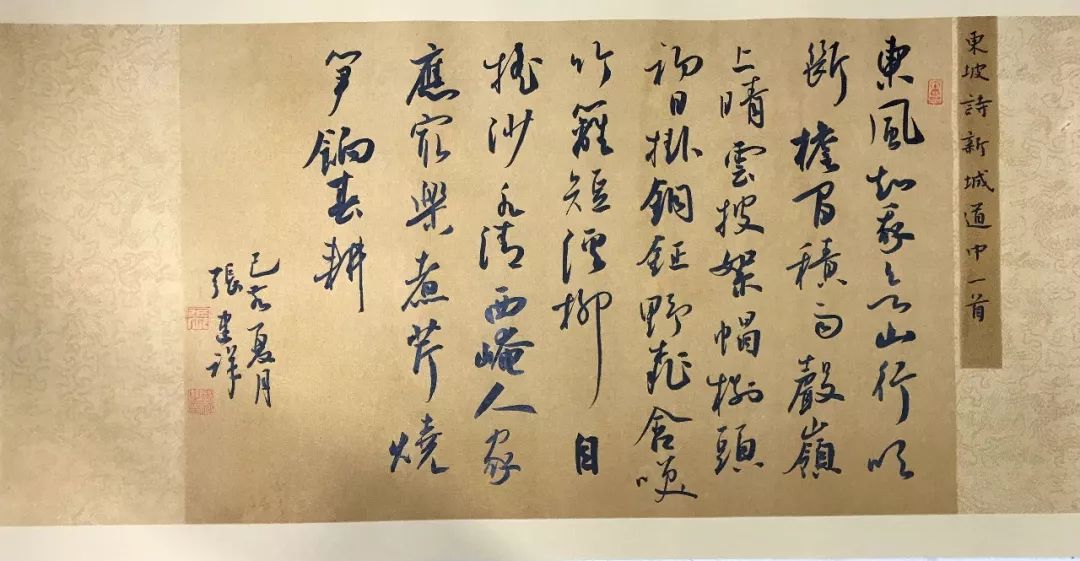 東坡詩新城道中一首
東風知我欲山行吹
斷檐間積雨聲嶺
上晴雲披絮帽樹頭
初日掛銅鉦野桃含咲
竹籬短溪柳自
搖沙水清西崦人家
應最樂煮芹燒
筍餉春耕
己亥夏月
張建祥